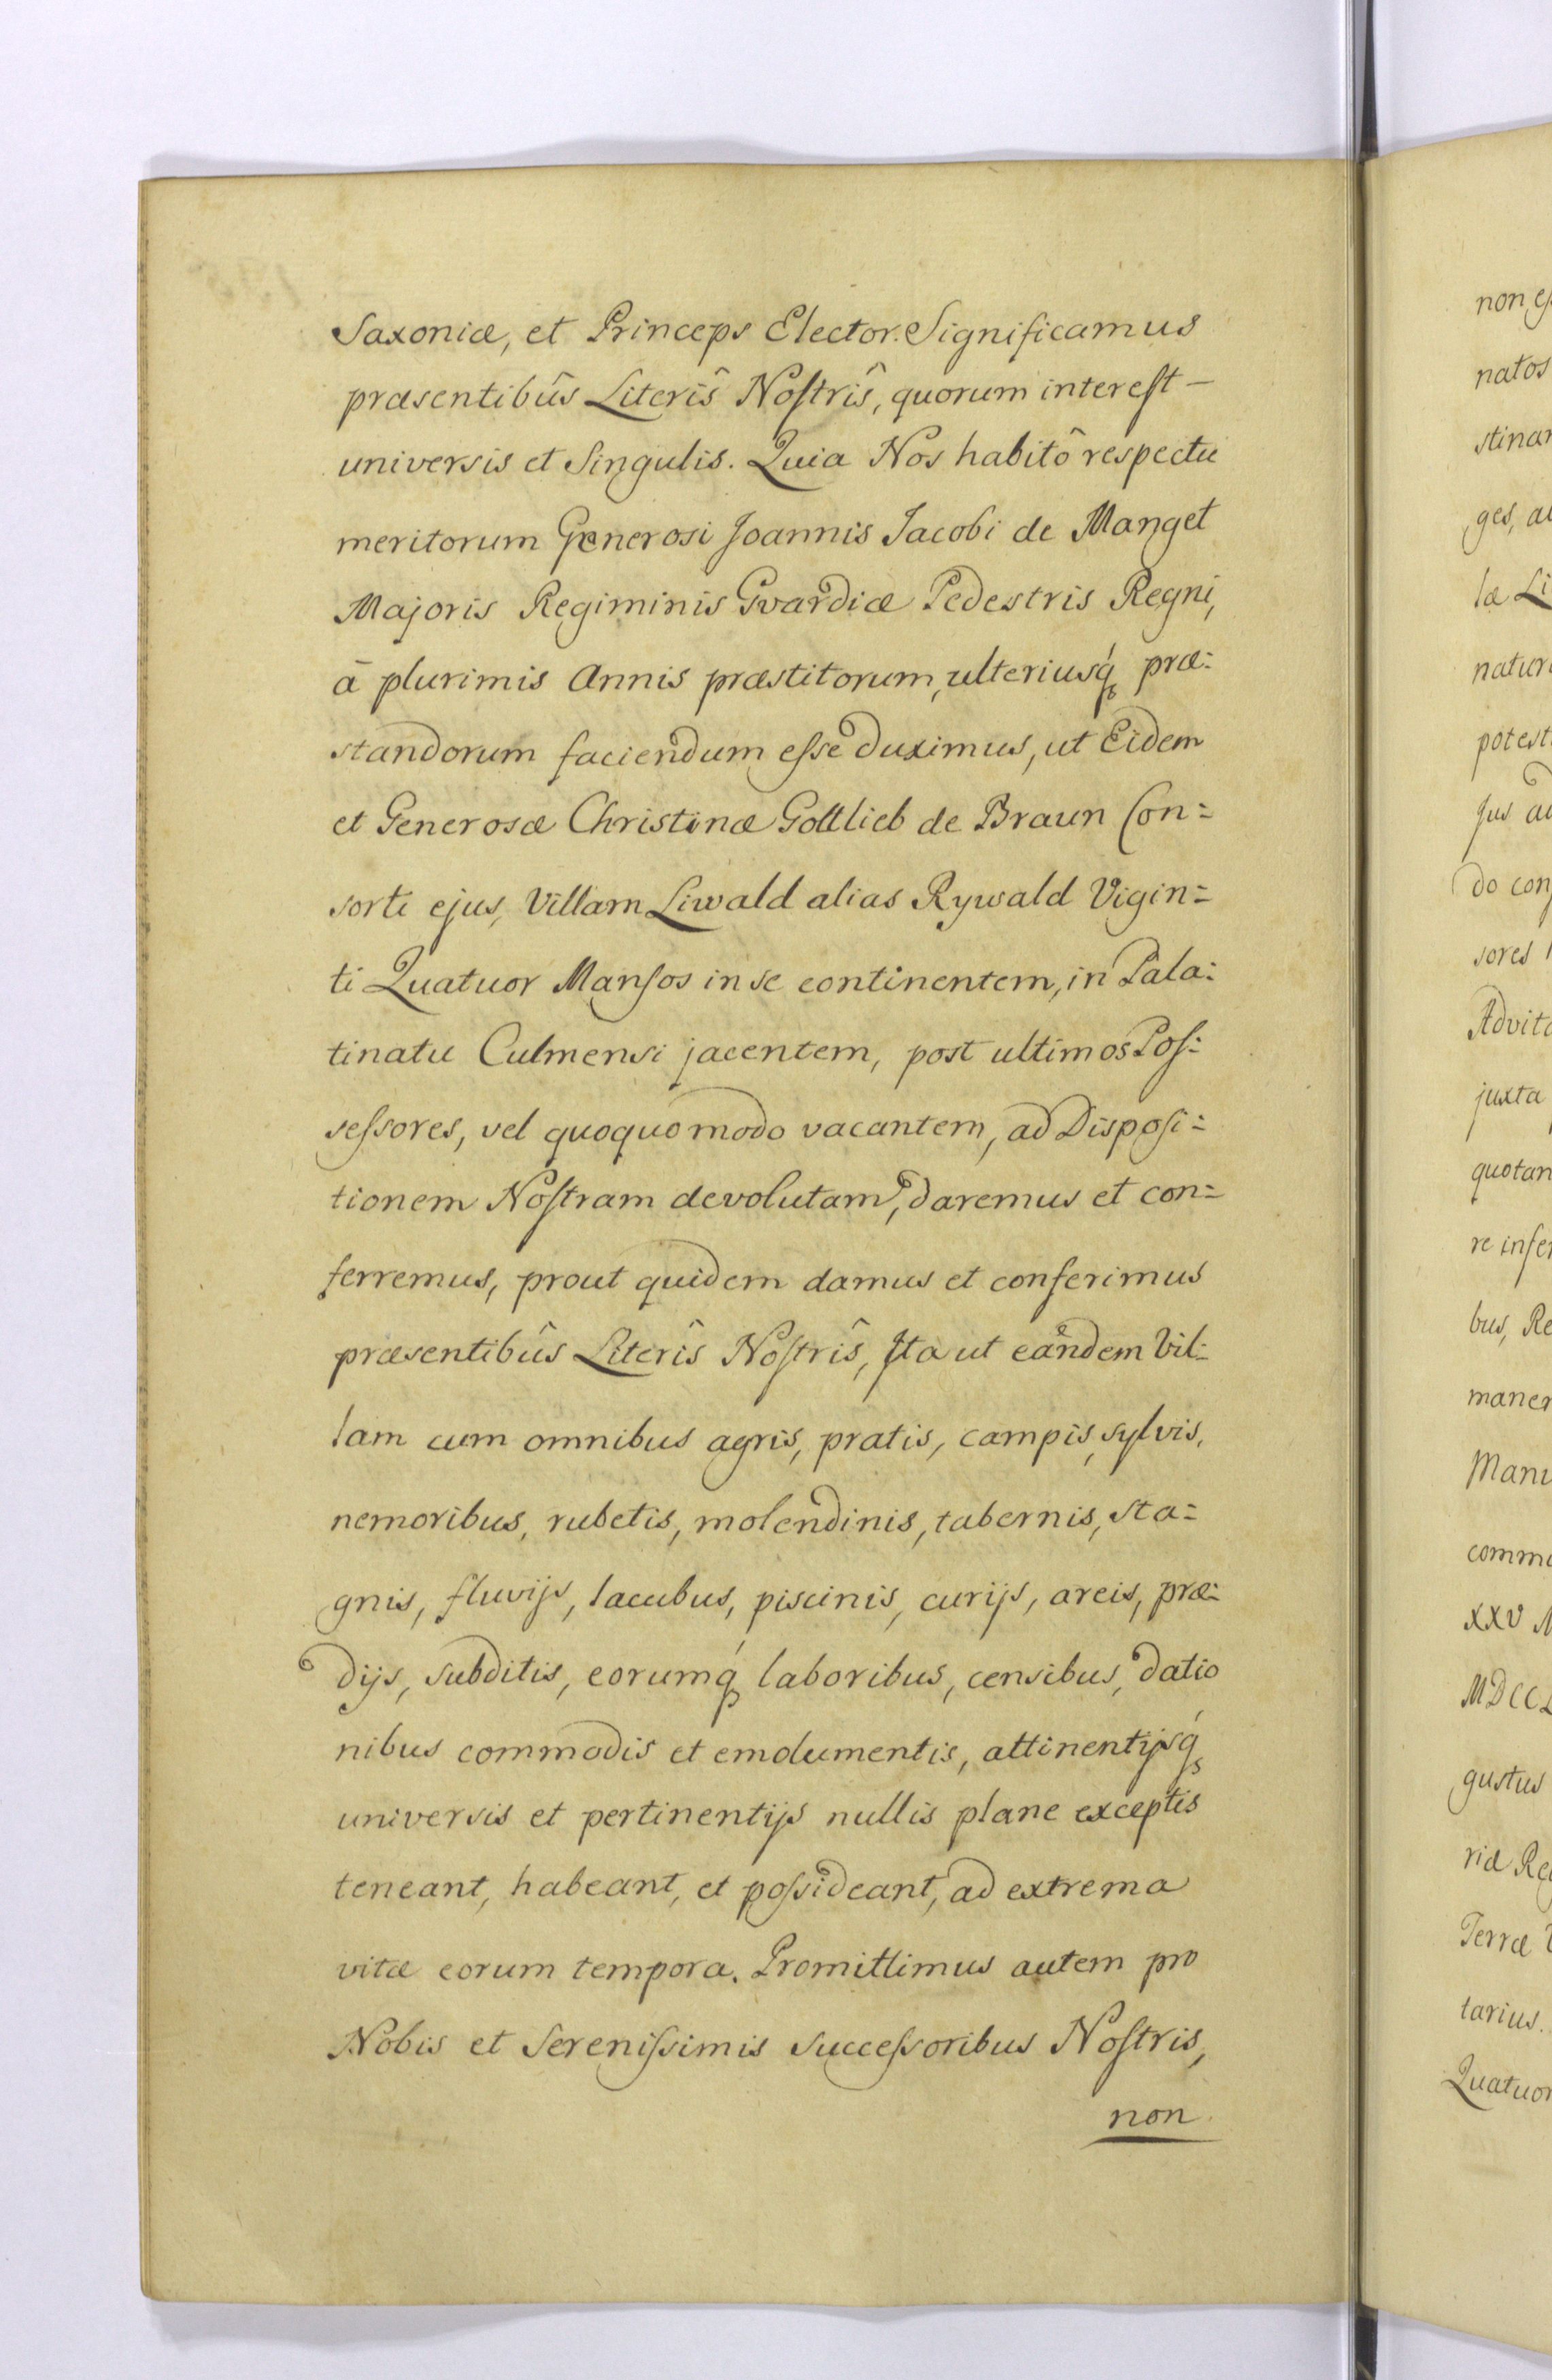 Saxoniæ, et Princeps Elector. Significamus
præsentibûs Literîs Nostrîs, quorum interest –
universis et Singulis. Quia Nos habitô respectu
meritorum Generosi Joannis Jacobi de Manget
Majoris Regiminis Gvardiæ Pedestris Regni,
à plurimis Annis præstitorum, ulteriusq́ præ:
standorum faciendum esse duximus, ut Eidem
et Generosæ Christinæ Gottlieb de Braun Con=
sorti ejus, Villam Liwald alias Rywald Vigin=
ti Quatuor Mansos in se continentem, in Pala:
tinatu Culmensi jacentem, post ultimos Pos:
sessores, vel quoquo modo vacantem, ad Disposi=
tionem Nostram devolutam, daremus et con=
ferremus, prout quidem damus et conferimus
præsentibûs Literîs Nostrîs, Ita ut eandem Vil=
lam cum omnibus agris, pratis, campis, sylvis,
nemoribus, rubetis, molendinis, tabernis, sta=
gnis, fluvijs, lacubus, piscinis, curijs, areis, præ:
dijs, subditis, eorumq́ laboribus, censibus, datio
nibus commodis et emolumentis, attinentijsq́
universis et pertinentijs nullis plane exceptis
teneant, habeant, et possideant, ad extrema
vitæ eorum tempora. Promittimus autem pro
Nobis et Serenissimis Successoribus Nostris,
non
natos
stinar
ges, a
læ Li
natur
potest
Jus a
do con
sores
Advit
juxta
quotan
re infe
bus, Re
maner
Manu
comm
XXV
MDCCL
gustus
riæ Re
Terræ
tarius.
Quatuor